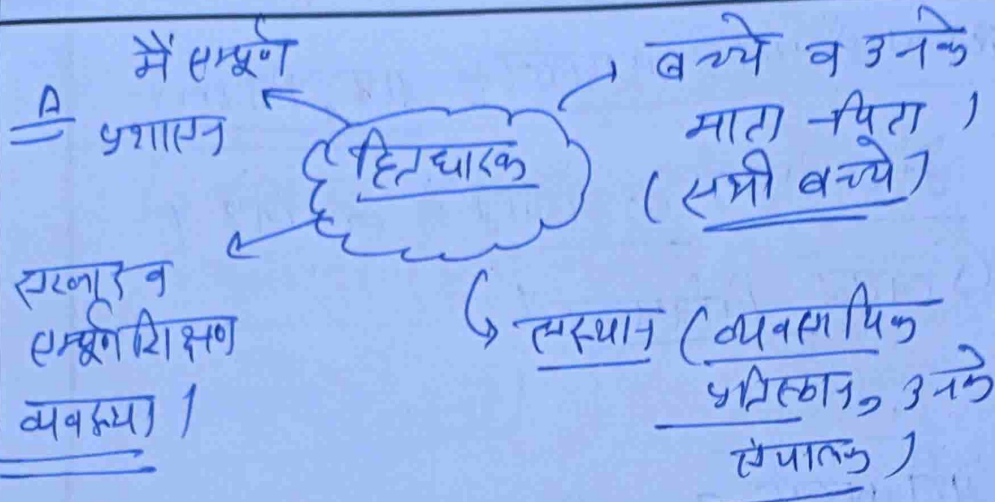 मैं सम्पूर्ण
प्रशासन
हितधारक
बच्चे व उनके
माता-पिता ।
(सभी बच्चे)
सरकार व
सम्पूर्ण शिक्षण
व्यवस्था ।
संस्थान (व्यवसायिक
प्रतिष्ठान, उनके
संचालक)